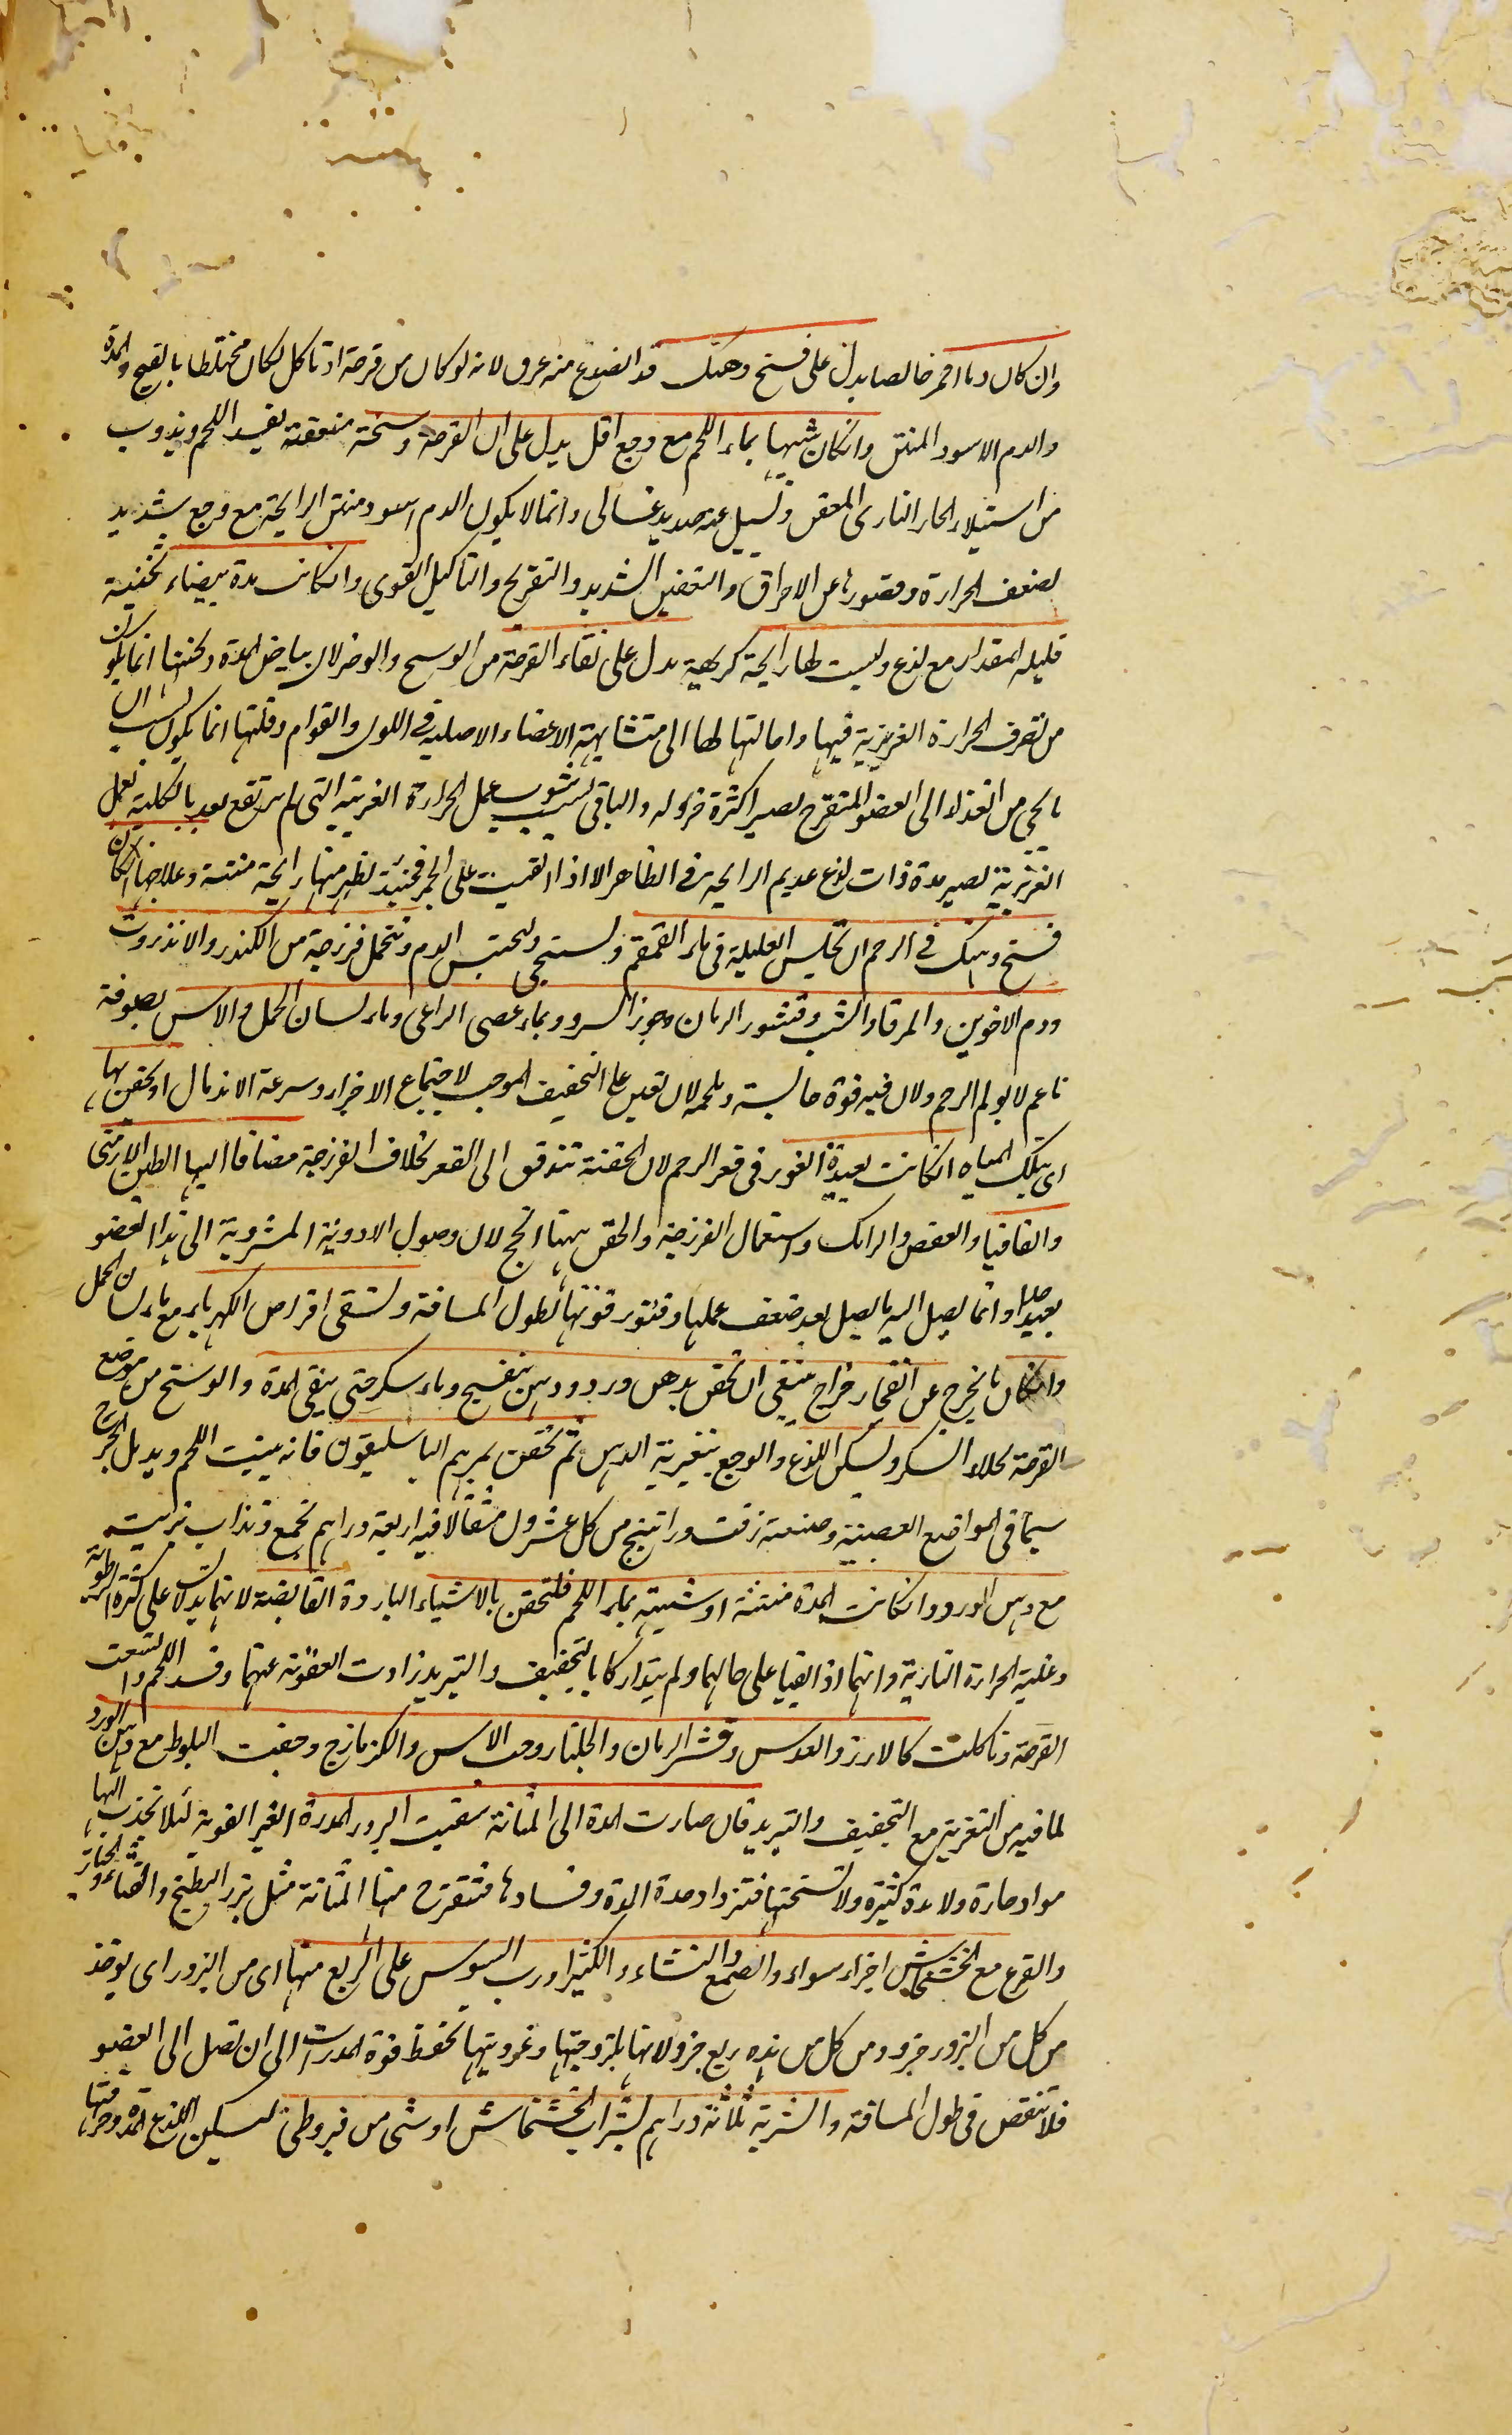 وان كان دما احمر خالصا يدل على فسخ وهتك قد انصدع منه عرق لانه لو كان من قرحة او تاكل لكان مختلطا بالقيح والمدة
والدم الاسود المنتن وانكان شبيها بماء اللحم مع وجع اقل يدل على ان القرحة وسخة متعفنة يفسد اللحم ويذوب
من استيلاء الحار النارى المعفن وتسيل عنه صديد غسالى وانما لا يكون الدم اسود منتن الرايحة مع وجع شديد
لضعف الحرارة وقصورها عن الاحراق والتعفين الشديد والتقريح والتاكيل القوى وانكانت مدة بيضاء ثخينة
قليلة المقدار مع لذع وليست لها رايحة كريهة يدل على نقاء القرحة من الوسخ والوضر لان بياض المدة وثخنها انما يكون
من تصرف الحرارة الغريزية فيها وامالتها لها الى متشابهة الاعضاء الاصلية فى اللون والقوام وقلتها انما يكون لسبب ان
ما يجى من الغذاء الى العضو المتقرح يصير اكثره جزء له والباقى بسبب شوب عمل الحرارة الغريبة التى لم ترتفع بعد بالكلية بعمل
الغريزية يصير مدة ذات لذع عديم الرايحة فى الظاهر الا اذا القيت على الجمر فحينئذ يظهر منها رايحة منتنة وعلاجها ان كان
فسخ وهتك فى الرحم ان تجلس العليلة فى ماء القمقم وتستنجى ليحتبس الدم وتتحمل فرزجة من الكندر والانزروت
ودم الاخوين والمر والشب وقشور الرمان وجوز السرو وبماء عصى الراعى وماء لسان الحمل والاس بصوفة
ناعم لا يولم الرحم ولان فيه قوة حابسة وملحمة لان تعين على التجفيف الموجب لاجتماع الاجزاء وسرعة الاندمال او تحقن بها
اى بتلك المياه انكانت بعيدة الغور فى قعر الرحم لان الحقنة تندفق الى القعر بخلاف الفرزجة مضافا اليها الطين الارمنى
والقاقيا والعفص والرامك واستعمال الفرزجة والحقن ههنا انجح لان وصول الادوية المشروبة الى هذا العضو
بعيد جدا وانما يصل اليه ما يصل بعد ضعف عملها وفتور قوتها لطول المسافة وتسقى اقراص الكهرباء مع ماء لسان الحمل
وانكان ما يخرج عن انفجار خراج ينبغى ان تحقن بدهن ورد ودهن بنفسج وماء سكر حتى ينقى المدة والوسخ من موضع
القرحة لجلاء السكر ويسكن اللذع والوجع بتغرية الدهن ثم تحقن بمرهم الباسليقون فانه ينبت اللحم ويدمل الجرح
سيما فى المواضع العصبية وصنعته زفت وراتينج من كل عشرون مثقالا فيه اربعة دراهم تجمع وتذاب بزيت
مع دهن الورد وانكانت المدة منتنة او شبيهة بماء اللحم فلتحقن بالاشياء الباردة القابضة لانهما يدلان على كثرة الرطوبة
وغلبة الحرارة النارية وانهما اذا القيا على حالهما ولم يتداركا بالتجفيف والتبريد زادت العفونة عنهما وفسد اللحم واتسعت
القرحة وتاكلت كالارز والعدس وقشر الرمان والجلنار وحب الاس والكزمازج وجفت البلوط مع دهن الورد
لما فيه من التغرية مع التجفيف والتبريد فان صارت المدة الى المثانة سقيت البزور المدرة الغير القوية لئلا تجذب اليها
مواد حارة ولا مدة كثيرة ولا تسخنها فتزداد حدة المدة وفسادها فتتقرح منها المثانة مثل بزر البطيخ والقثاء والخيار
والقرع مع الخشخاش اجزاء سواء والصمغ والنشاء والكثيرا ورب السوس على الربع منها اى من البزور اى يوخذ
من كل من البزور جزو ومن كل من هذه ربع جزو لانها بلزوجتها وغرويتها تحفظ قوة المدرات الى ان تصل الى العضو
فلا تنقص فى طول المسافة والشربة ثلاثة دراهم بشراب الخشخاش او شى من قيروطى لتسكين اللذع المدة وحرقتها